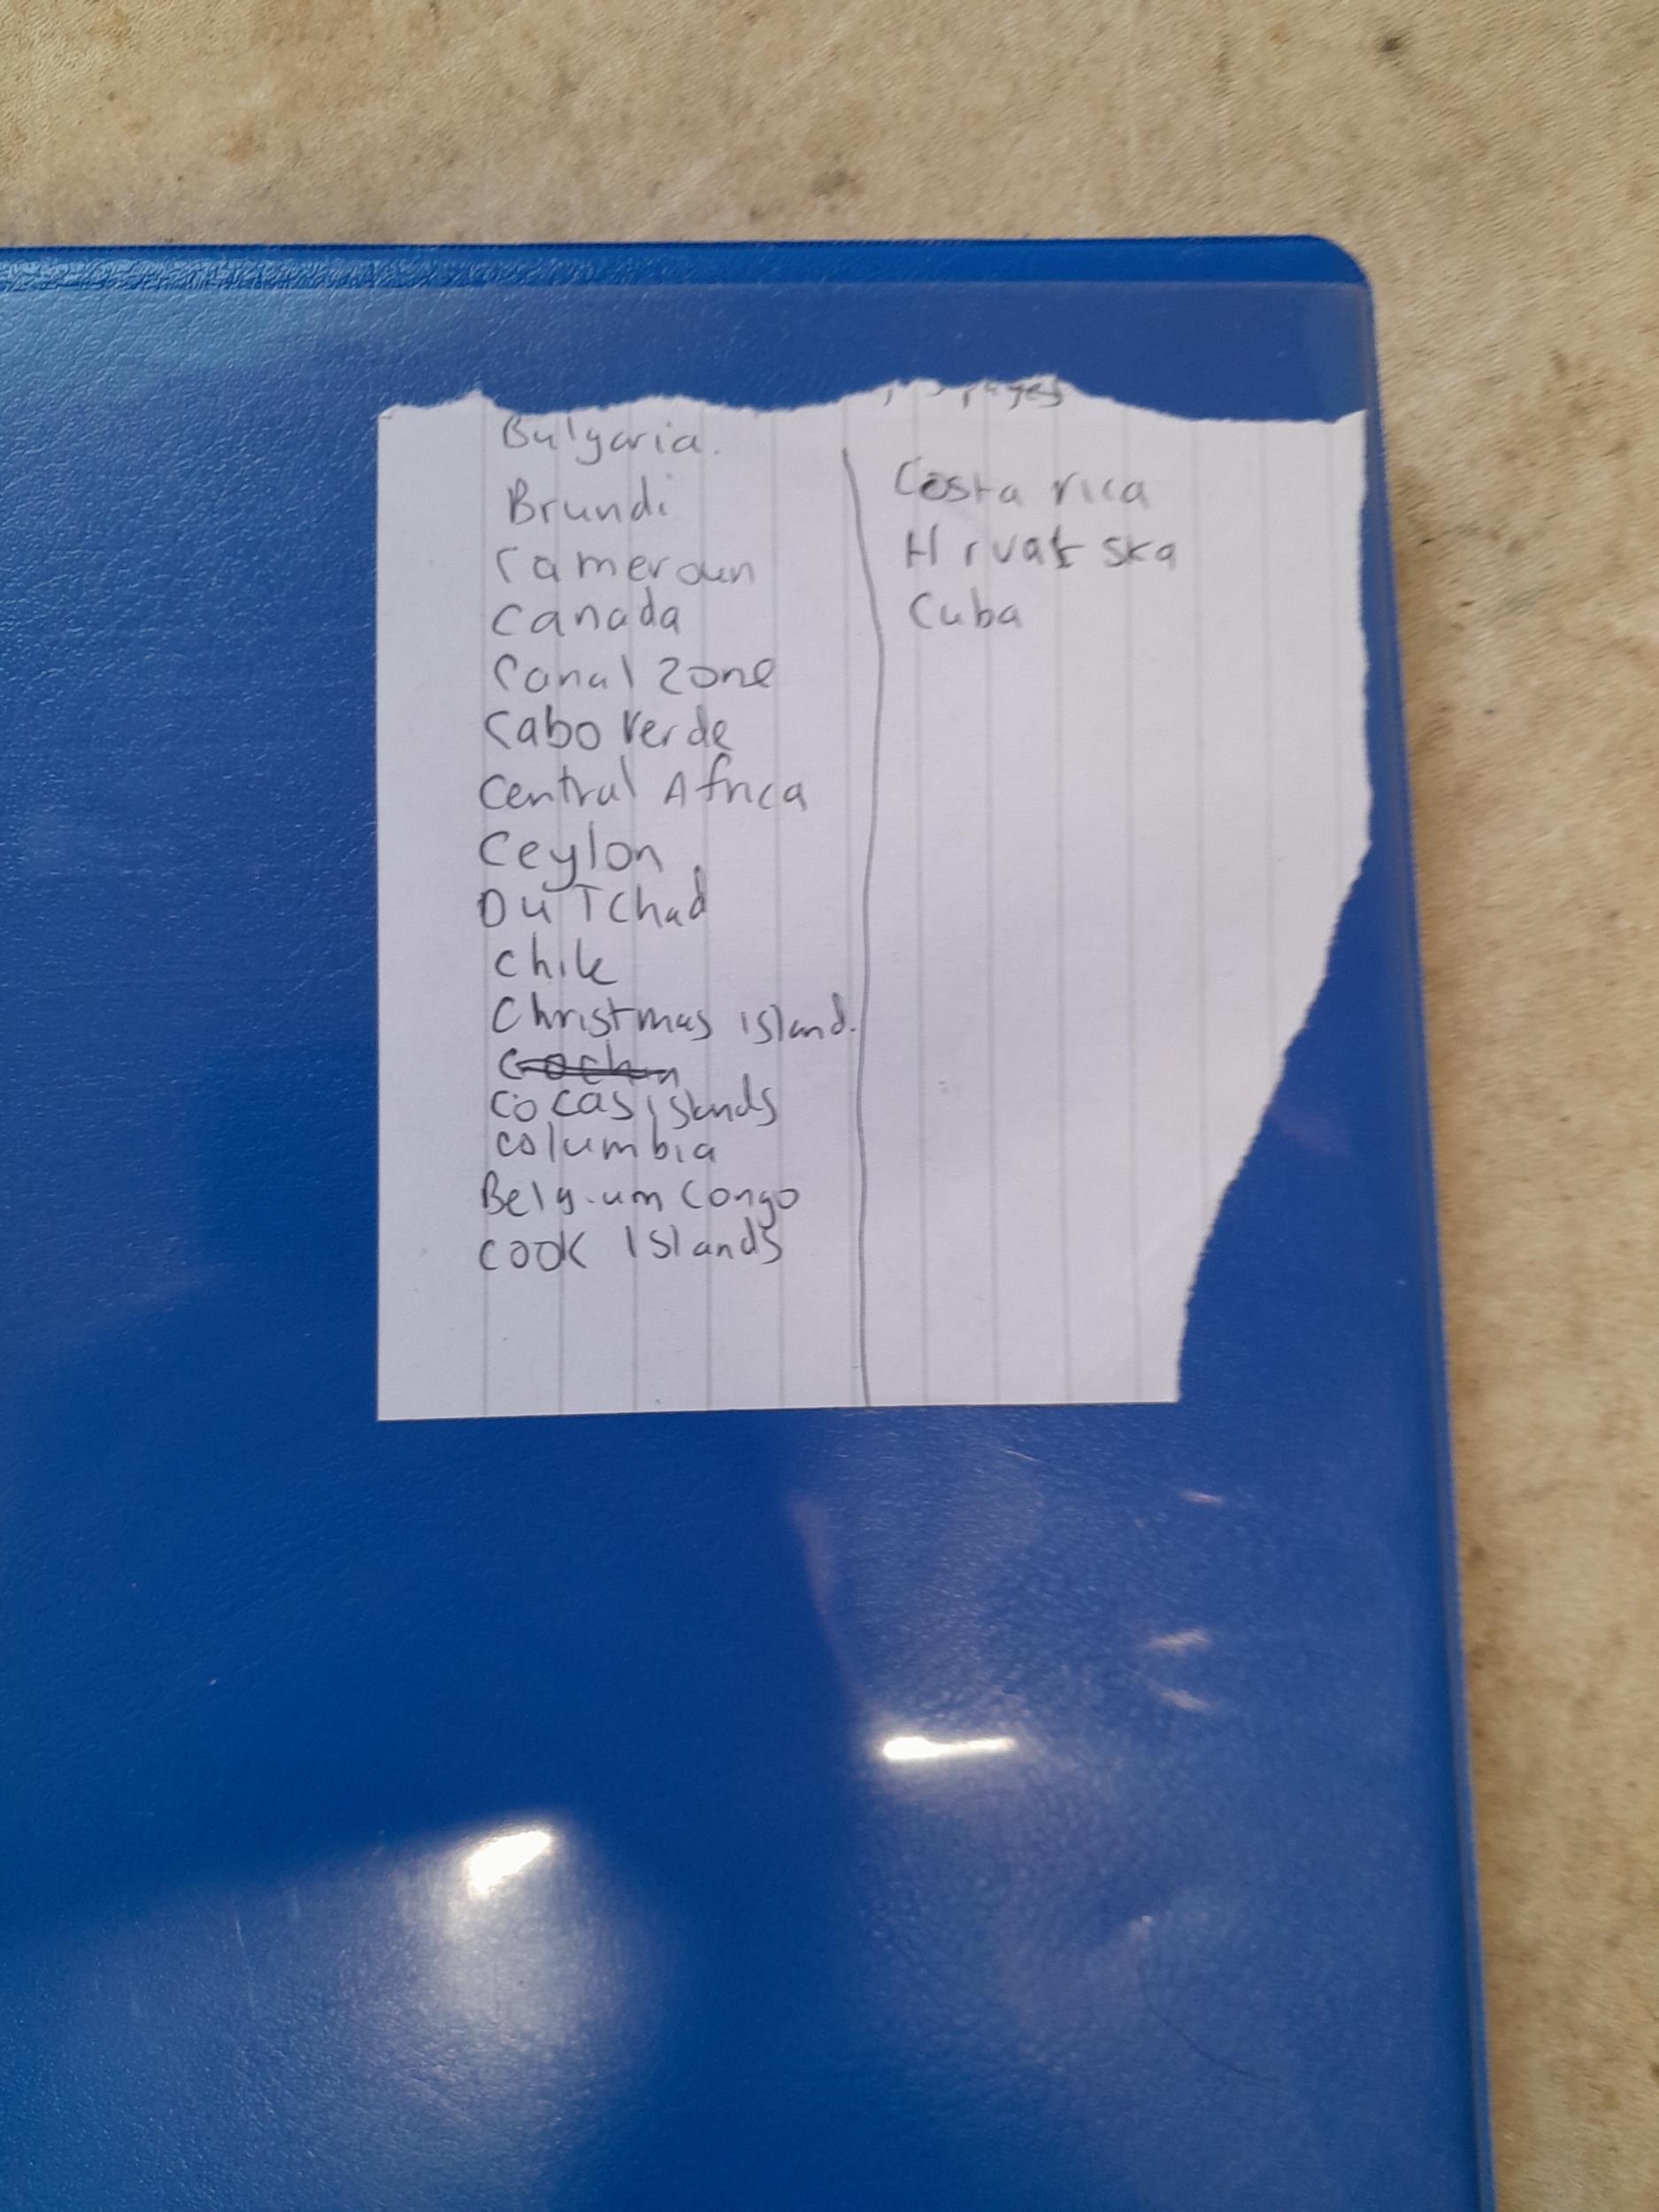 Bulgaria.
Brundi
Cameroun
Canada
Canal Zone
Cabo Verde
Central Africa
Ceylon
Du TChad
Chile
Christmas Island.
Cochin
Cocas islands
Columbia
Belgium Congo
Cook Islands
Costa rica
Hrvatska
Cuba